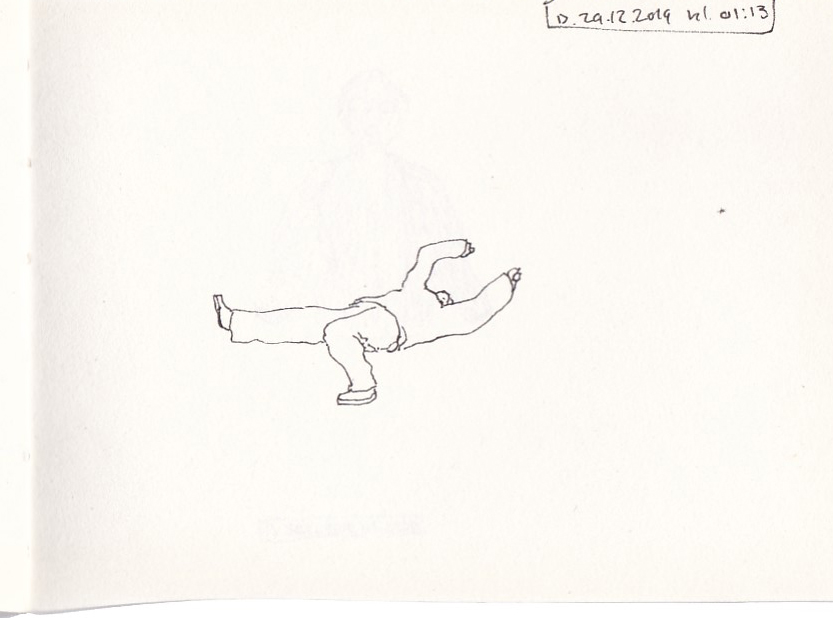 D. 29.12.2019 kl. 01:13